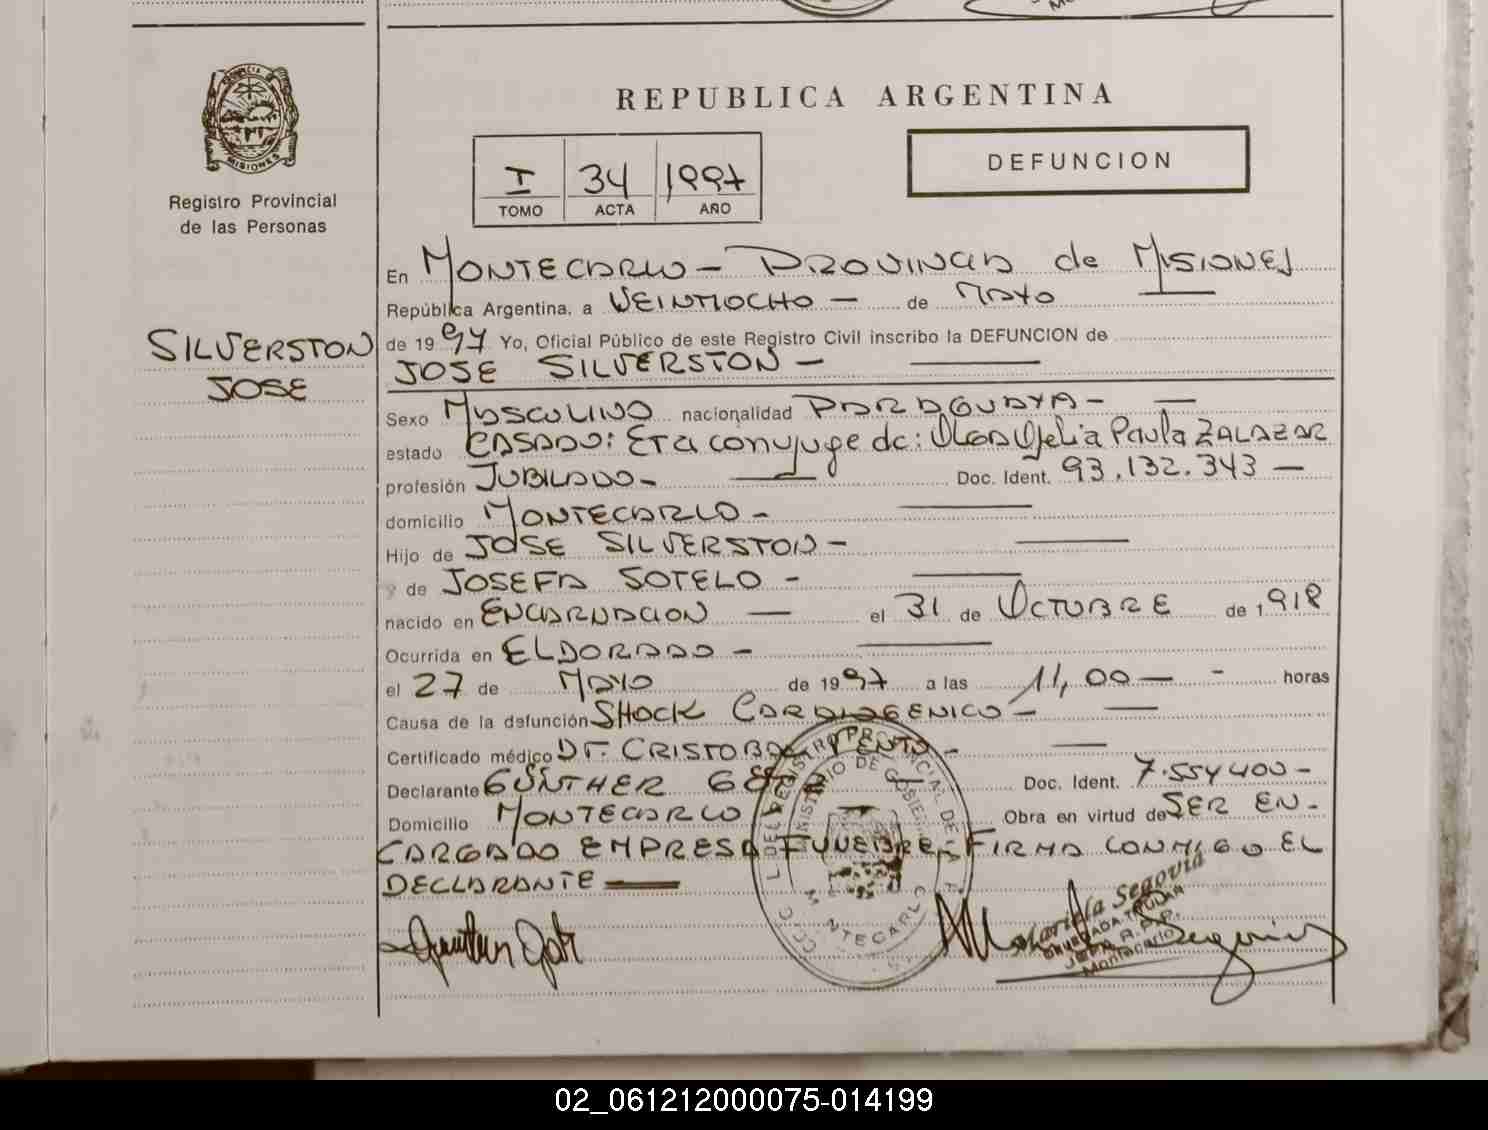 PROVINCIA DE
MISIONES
Registro Provincial
de las Personas
SILVERSTON
JOSE
REPUBLICA ARGENTINA
I 34 1997
TOMO ACTA AÑO
DEFUNCION
En MONTECARLO - PROVINCIA de MISIONES
República Argentina, a VEINTIOCHO - de MAYO
de 1997 Yo, Oficial Público de este Registro Civil inscribo la DEFUNCION de
JOSE SILVERSTON -
Sexo MASCULINO nacionalidad PARAGUAYA -
estado CASADO: Era conyuge de: OLGA Ofelia Paula ZALAZAR
profesión JUBILADO - Doc. Ident. 93.132.343 -
domicilio MONTECARLO -
Hijo de JOSE SILVERSTON -
y de JOSEFA SOTELO -
nacido en ENCARNACION - el 31 de OCTUBRE de 1918
Ocurrida en ELDORADO -
el 27 de MAYO de 1997 a las 11,00 - - horas
Causa de la defunción SHOCK CARDIOGENICO -
Certificado médico Dr. CRISTOBAL -
Declarante GÜNTHER Doc. Ident. 7.554400 -
Domicilio MONTECARLO Obra en virtud de SER EN-
CARGADO EMPRESA FUNEBRE. FIRMA CONMIGO EL
DECLARANTE
REGISTRO PROVINCIAL DE LAS
MINISTERIO DE GOBIERNO
MONTECARLO
Segovia
Montecarlo
02_061212000075-014199